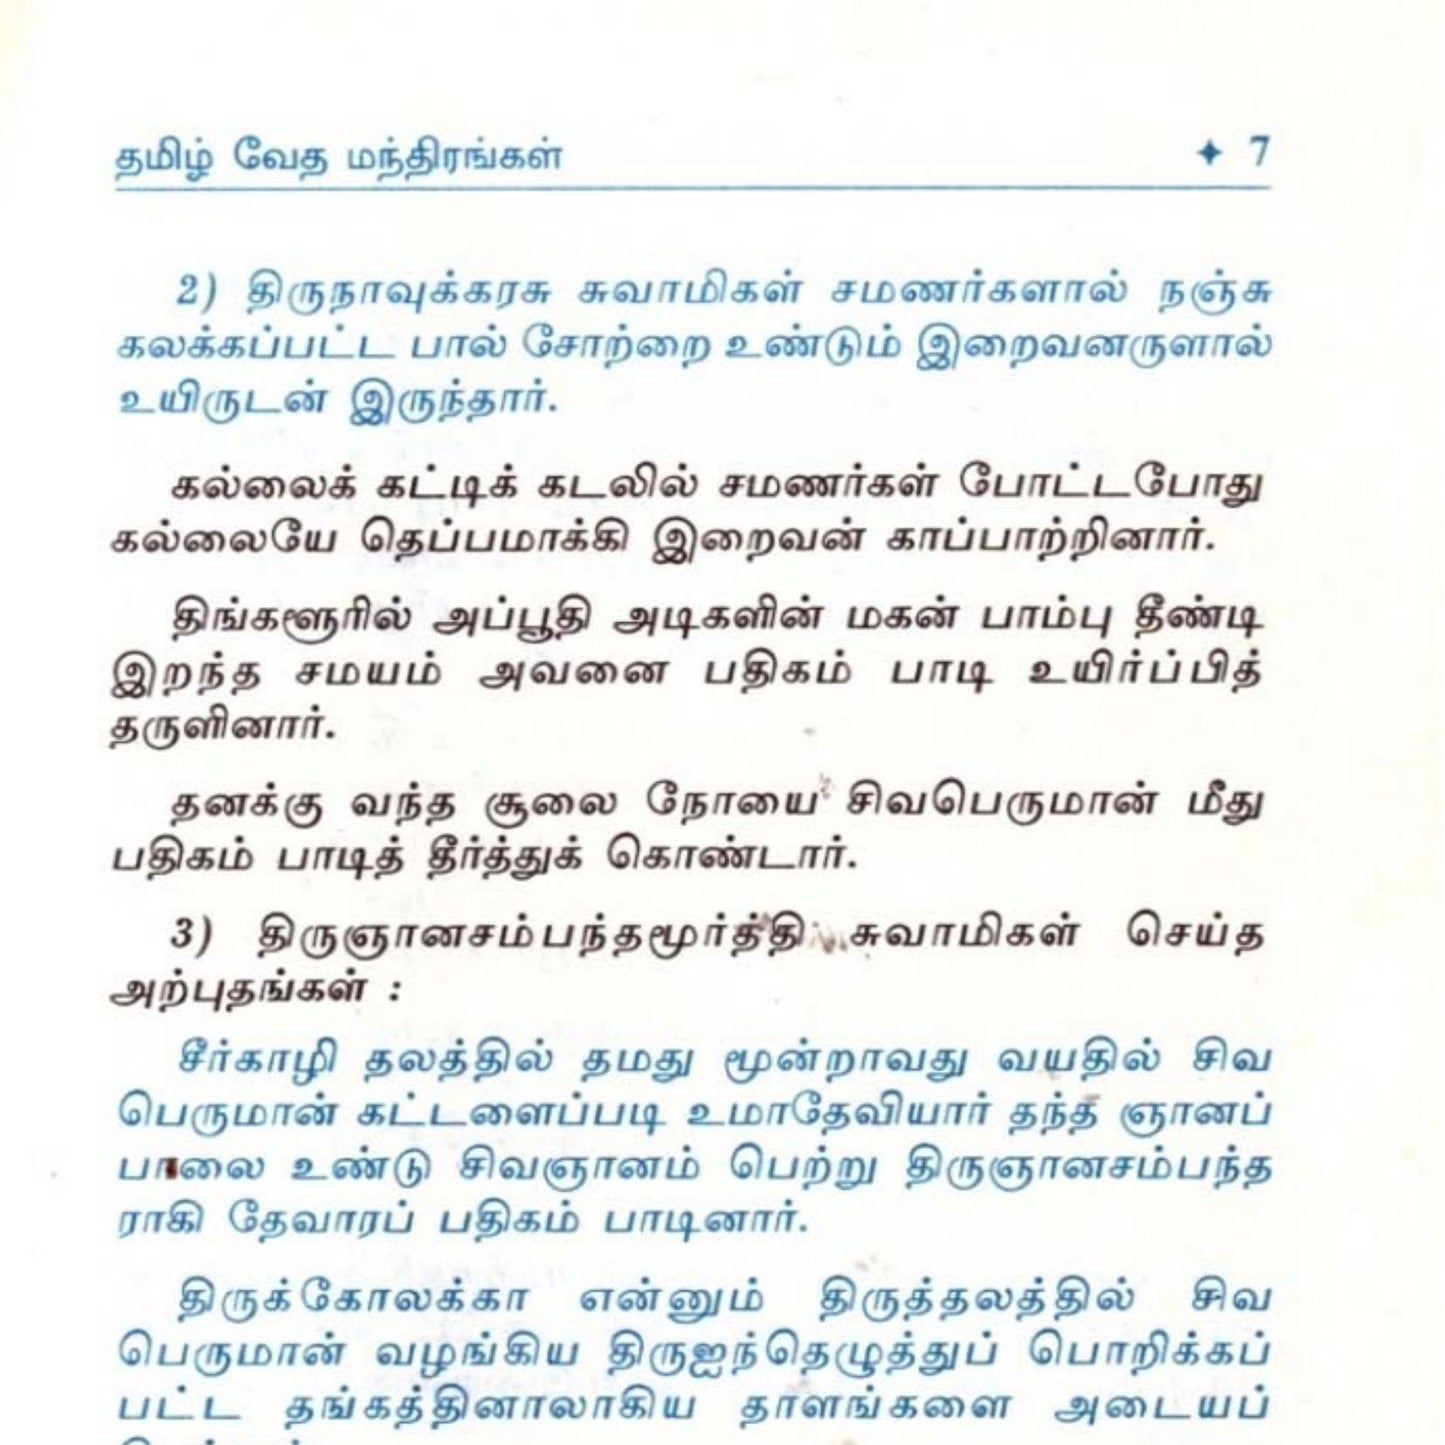 தமிழ் வேத மந்திரங்கள் ✦ 7
2) திருநாவுக்கரசு சுவாமிகள் சமணர்களால் நஞ்சு
கலக்கப்பட்ட பால் சோற்றை உண்டும் இறைவனருளால்
உயிருடன் இருந்தார்.
கல்லைக் கட்டிக் கடலில் சமணர்கள் போட்டபோது
கல்லையே தெப்பமாக்கி இறைவன் காப்பாற்றினார்.
திங்களூரில் அப்பூதி அடிகளின் மகன் பாம்பு தீண்டி
இறந்த சமயம் அவனை பதிகம் பாடி உயிர்ப்பித்
தருளினார்.
தனக்கு வந்த சூலை நோயை சிவபெருமான் மீது
பதிகம் பாடித் தீர்த்துக் கொண்டார்.
3) திருஞானசம்பந்தமூர்த்தி சுவாமிகள் செய்த
அற்புதங்கள் :
சீர்காழி தலத்தில் தமது மூன்றாவது வயதில் சிவ
பெருமான் கட்டளைப்படி உமாதேவியார் தந்த ஞானப்
பாலை உண்டு சிவஞானம் பெற்று திருஞானசம்பந்த
ராகி தேவாரப் பதிகம் பாடினார்.
திருக்கோலக்கா என்னும் திருத்தலத்தில் சிவ
பெருமான் வழங்கிய திருஐந்தெழுத்துப் பொறிக்கப்
பட்ட தங்கத்தினாலாகிய தாளங்களை அடையப்